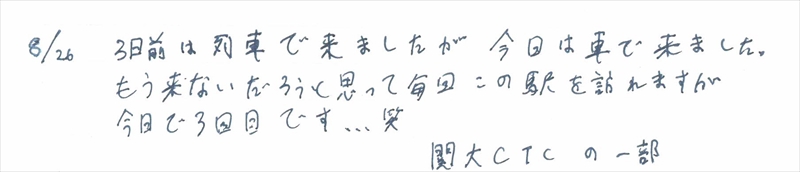 8/26 3日前は列車で来ましたが 今日は車で来ました。
もう来ないだろうと思って毎回この駅を訪れますが
今日で3回目です...笑
関大CTCの一部